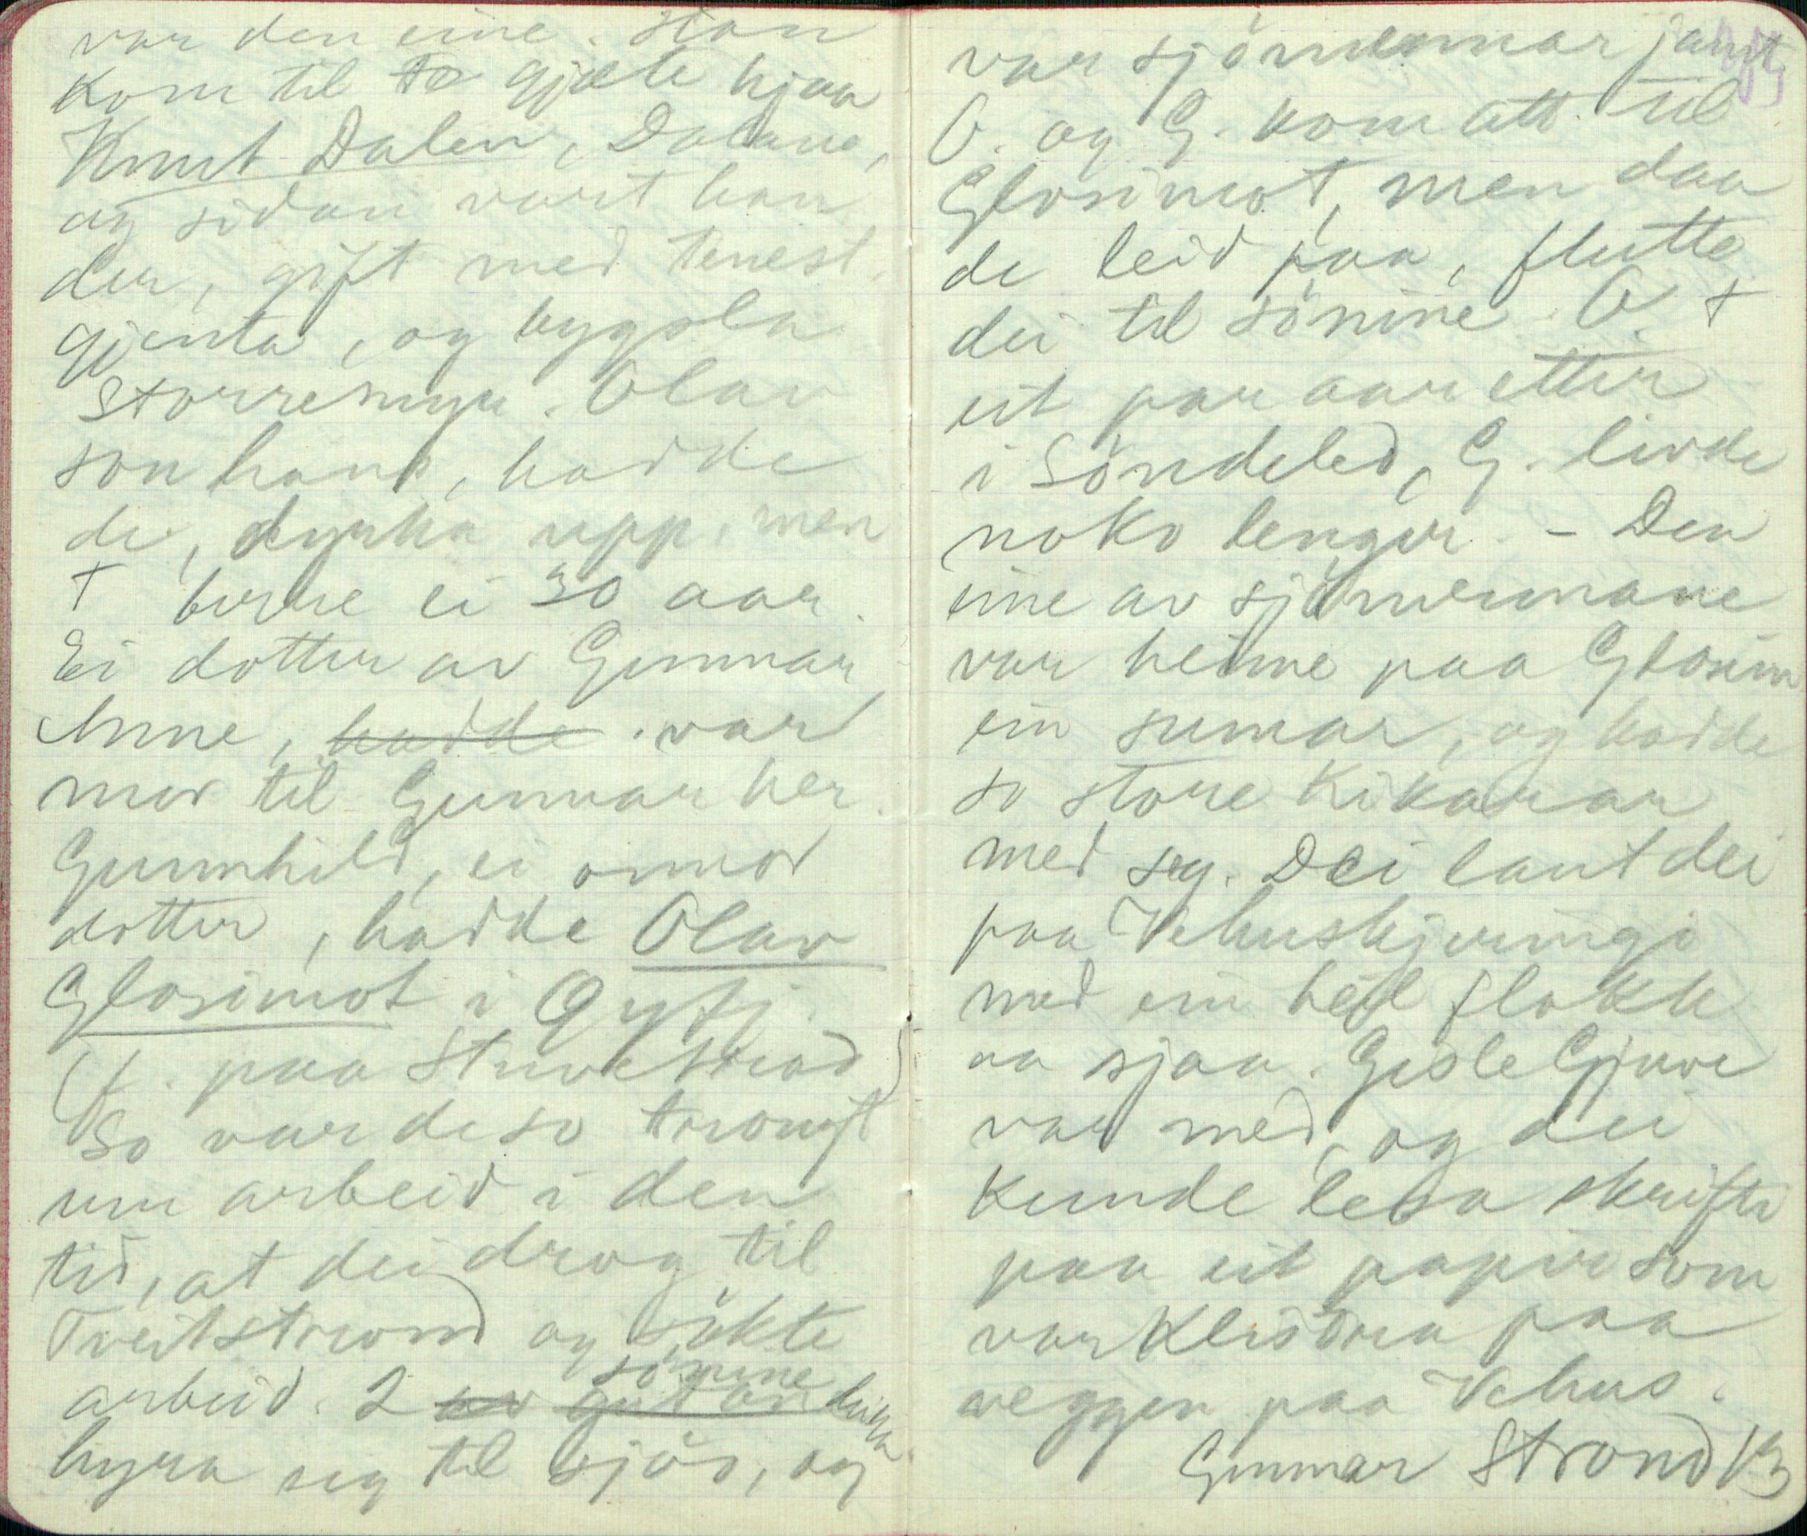 var den eine. Han
kom til to gjæte hjaa
Knut Dalen, Dalane,
og sidan vart han
der, gift med tenest
gjenta, og bygsla
Storremyr. Olav
son hans, hadde
de, dyrka upp, men
† berre ei 30 aar.
Ei dotter av Gunnar
Anne, hadde var
mor til Gunnar her.
Gunnhild, ei onnor
dotter, hadde Olav
Glosimot i
paa Stuvestrond
So var de so trongt
um arbeid i den
tid, at dei drog til
Tveitstrond og sökte
arbeid. 2 av gutan sönine deira
hyra seg til sjös, og
var sjömennar jamt
O. og G. kom att til
Glosimot, men daa
de leid paa, flutte
dei til sönine. O. †
eit par aar etter
i Söndeled, G. livde
noko lenger. – Den
eine av sjömennane
var heime paa Glosim
ein sumar, og hadde
so store kikarar
med seg. Dei laut dei
paa Vehuskjeringi
med ein heil flokk
aa sjaa. Gisle Gjuve
var med, og dei
kunde lesa skrifti
paa eit papir som
var klistra paa
veggen paa Vehus.
Gunnar Strond